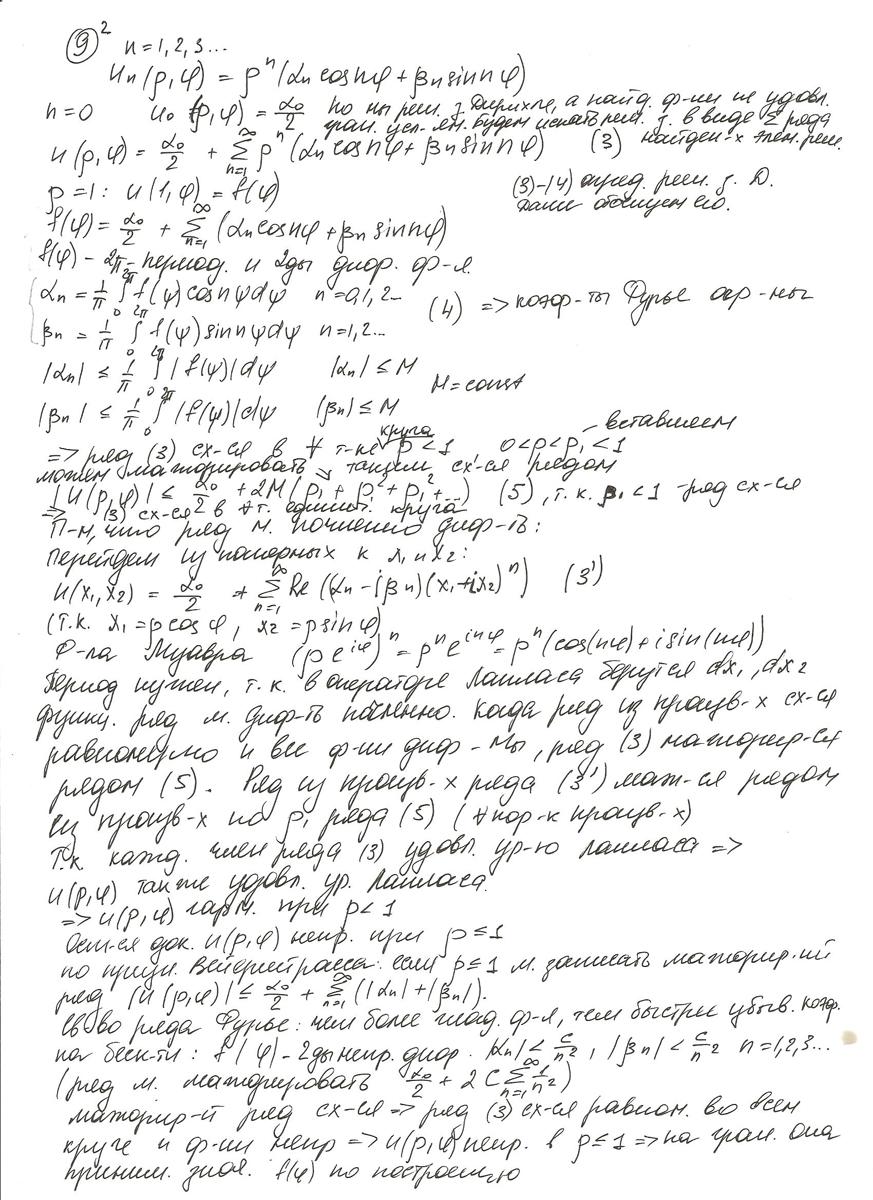 9² n=1,2,3...
Uₙ(ρ,φ) = ρⁿ(αₙ cos nφ + βₙ sin nφ)
n=0 U₀(ρ,φ) = α₀/2 но мы реш. з. Дирихле, а найд. ф-ии не удовл.
гран. усл-ям. Будем искать реш. з. в виде Σ ряда
U(ρ,φ) = α₀/2 + Σₙ₌₁^∞ ρⁿ(αₙ cos nφ + βₙ sin nφ) (3) найден-х элем. реш.
ρ=1: U(1,φ) = f(φ) (3)-(4) опред. реш. з. Д.
f(φ) = α₀/2 + Σₙ₌₁^∞ (αₙ cos nφ + βₙ sin nφ) Далее его.
f(φ) - 2π-период. и 2ды диф. ф-я.
αₙ = 1/π ∫₀^2π f(ψ) cos nψ dψ n=0,1,2... (4) => коэф-ты Фурье огр-ны
βₙ = 1/π ∫₀^2π f(ψ) sin nψ dψ n=1,2...
|αₙ| ≤ 1/π ∫₀^2π |f(ψ)| dψ |αₙ| ≤ M
M = const
|βₙ| ≤ 1/π ∫₀^2π |f(ψ)| dψ |βₙ| ≤ M
=> ряд (3) сх-ся в ∀ т-ке круга ρ<1 0<ρ<ρ₁<1 - вставляем
можем мажорировать таким сх-ся рядом
|U(ρ,φ)| ≤ α₀/2 + 2M(ρ₁ + ρ₁² + ρ₁³ + ...) (5), т.к. ρ₁<1 - ряд сх-ся
=> (3) сх-ся в ∀ т. единич. круга
П-м, что ряд м. почленно диф-ть:
Перейдем из полярных к x₁ и x₂:
U(x₁,x₂) = α₀/2 + Σₙ₌₁^∞ Re((αₙ - iβₙ)(x₁+ix₂)ⁿ) (3')
(т.к. x₁ = ρcos φ, x₂ = ρsin φ)
Ф-ла Муавра (ρe^iφ)ⁿ = ρⁿe^inφ = ρⁿ(cos(nφ) + i sin(nφ))
Период нужен, т.к. в операторе Лапласа берутся dx₁, dx₂
Функц. ряд м. диф-ть почленно. Когда ряд из произв-х сх-ся
равномерно и все ф-ии диф-мы, ряд (3) мажорир-ся
рядом (5). Ряд из произв-х ряда (3') маж-ся рядом
из произв-х по ρ₁ ряда (5) (∀ пор-к произв-х)
Т.к. кажд. член ряда (3) удовл. ур-ю Лапласа =>
U(ρ,φ) также удовл. ур. Лапласа.
=> U(ρ,φ) гарм. при ρ<1
Ост-ся док. U(ρ,φ) непр. при ρ≤1
по призн. Вейерштрасса: если ρ≤1 м. записать мажорир-ий
ряд |U(ρ,φ)| ≤ α₀/2 + Σₙ₌₁^∞ (|αₙ| + |βₙ|).
Св-во ряда Фурье: чем более глад. ф-я, тем быстрее убыв. коэф.
на беск-ти: f(φ) - 2ды непр. диф. |αₙ| < c/n², |βₙ| < c/n² n=1,2,3...
(ряд м. мажорировать α₀/2 + 2C Σₙ₌₁^∞ 1/n²)
мажорир-й ряд сх-ся => ряд (3) сх-ся равном. во всем
круге и ф-ии непр => U(ρ,φ) непр. в ρ≤1 => на гран. она
приним. знач. f(φ) по построению